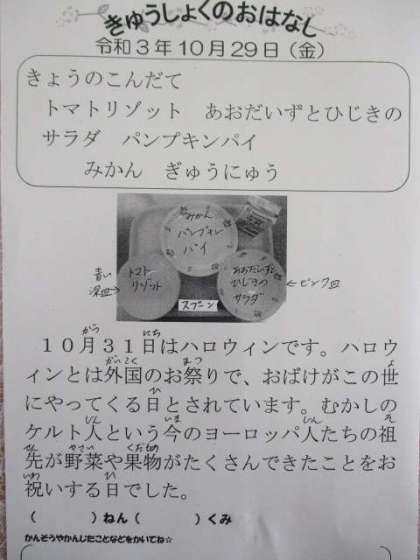 きゅうしょくのおはなし
令和3年10月29日（金）
きょうのこんだて
トマトリゾット　あおだいずとひじきの
サラダ　パンプキンパイ
みかん　ぎゅうにゅう
みかん
パンプキン
パイ
青い
深皿→
トマト
リゾット
あおだいずと
ひじきの
サラダ
←ピンク皿
スプーン
がつ　にち
10月31日はハロウィンです。ハロウ
がいこく　まつ　よ
ィンとは外国のお祭りで、おばけがこの世
ひ
にやってくる日とされています。むかしの
じん　いま　じん　そ
ケルト人という今のヨーロッパ人たちの祖
せん　やさい　くだもの
先が野菜や果物がたくさんできたことをお
いわ　ひ
祝いする日でした。
（　　　）ねん（　　　）くみ
かんそうやかんじたことなどをかいてね☆